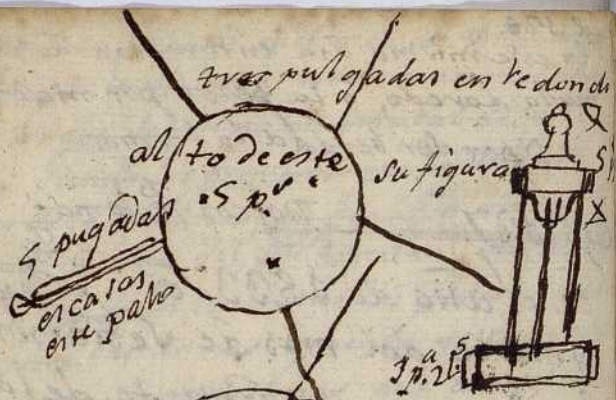 tres pulgadas en redondo
alto de este
5 p.ˢ
su figura
5 pugadas
escasas
este palo